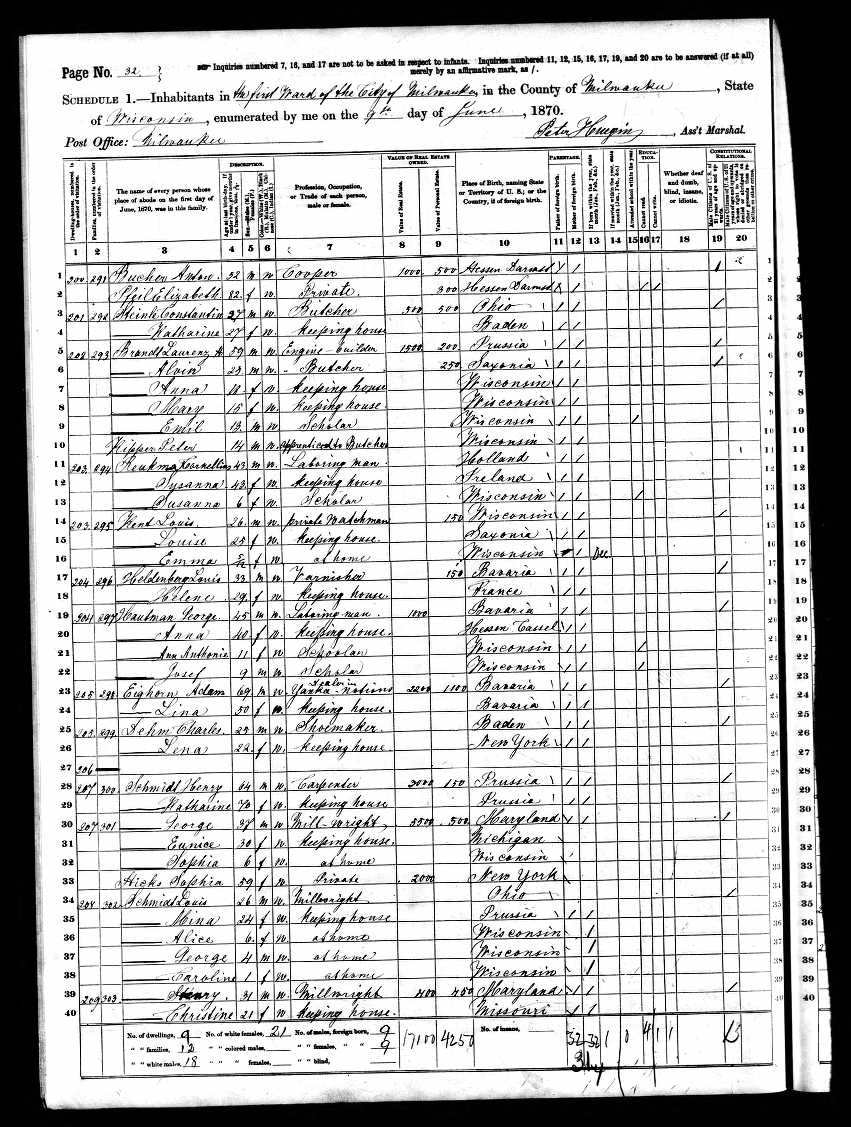 Page No. 32
Inquiries numbered 7, 16, and 17 are not to be asked in respect to infants. Inquiries numbered 11, 12, 15, 16, 17, 19, and 20 are to be answered (if at all) merely by an affirmative mark, as /.
SCHEDULE 1.—Inhabitants in the first Ward of the City of Milwaukee, in the County of Milwaukee, State
of Wisconsin, enumerated by me on the 9th day of June, 1870.
Post Office: Milwaukee
Peter Huegin, Ass't Marshal.
DESCRIPTION. VALUE OF REAL ESTATE OWNED. PARENTAGE. EDUCATION. CONSTITUTIONAL RELATIONS.
The name of every person whose place of abode on the first day of June, 1870, was in this family.
Profession, Occupation, or Trade of each person, male or female.
Value of Real Estate. Value of Personal Estate.
Place of Birth, naming State or Territory of U. S.; or the Country, if of foreign birth.
Whether deaf and dumb, blind, insane, or idiotic.
1 2 3 4 5 6 7 8 9 10 11 12 13 14 15 16 17 18 19 20
1 200 291 Bucher Anton 32 m w Cooper 1000 500 Hessen Darmst / / /
2 Pfeil Elizabeth 82 f w Private 300 Hessen Darmst / / / /
3 201 292 Steinle Constantin 27 m w Butcher 500 500 Ohio / / /
4 Katharine 27 f w keeping house Baden / /
5 202 293 Brandt Laurenz A 59 m w Engine builder 1500 200 Prussia / / /
6 Alvin 23 m w " Butcher 250 Saxonia / / /
7 Anna 18 f w keeping house Wisconsin / /
8 Mary 15 f w keeping house Wisconsin / /
9 Emil 13 m w Scholar Wisconsin / / /
10 Kipper Peter 14 m w apprenticed to Butcher Wisconsin / /
11 203 294 Cornellius 43 m w Laboring man Holland / /
12 Sysanna 43 f w keeping house Ireland / /
13 Susanna 6 f w Scholar Wisconsin / / /
14 203 295 Kent Louis 26 m w private Watchman 150 Wisconsin / / /
15 Louise 25 f w keeping house Saxonia / /
16 Emma 5/12 f w at home Wisconsin / / Dec
17 204 296 Holdenberg Louis 33 m w Varnisher 150 Bavaria / / /
18 Helene 29 f w keeping house France / /
19 204 297 Hautman George 45 m w Laboring man 1000 Bavaria / / /
20 Anna 40 f w keeping house Hessen Cassel / /
21 Ann Anthonie 11 f w Schoolar Wisconsin / / /
22 Josef 9 m w Scholar Wisconsin / / /
23 205 298 Eighorn Adam 69 m w Yankee notions 2200 1100 Bavaria / / /
24 Lina 50 f w keeping house Bavaria / /
25 205 299 Sehm Charles 25 m w Shoemaker Baden / / /
26 Lena 22 f w keeping house New York / /
27 206
28 207 300 Schmidt Henry 64 m w Carpenter 3000 150 Prussia / / /
29 Katharine 70 f w keeping house Prussia / /
30 207 301 George 37 m w Mill-wright 5500 500 Maryland / / /
31 Eunice 30 f w keeping house Michigan
32 Sophia 6 f w at home Wisconsin
33 Hicks Sophia 59 f w Private 2000 New York
34 208 302 Schmidt Louis 26 m w Millwright Ohio /
35 Mina 24 f w keeping house Prussia / /
36 Alice 6 f w at home Wisconsin /
37 George 4 m w at home Wisconsin /
38 Caroline 1 f w at home Wisconsin /
39 209 303 Henry 31 m w Millwright 400 450 Maryland / / /
40 Christine 21 f w keeping house Missouri / /
No. of dwellings, 9 No. of white females, 21 No. of males, foreign born, 9 17100 4250 No. of insane,
" " families, 12 " " colored males, " " females, " " 9
" " white males, 18 " " " females, " " blind,